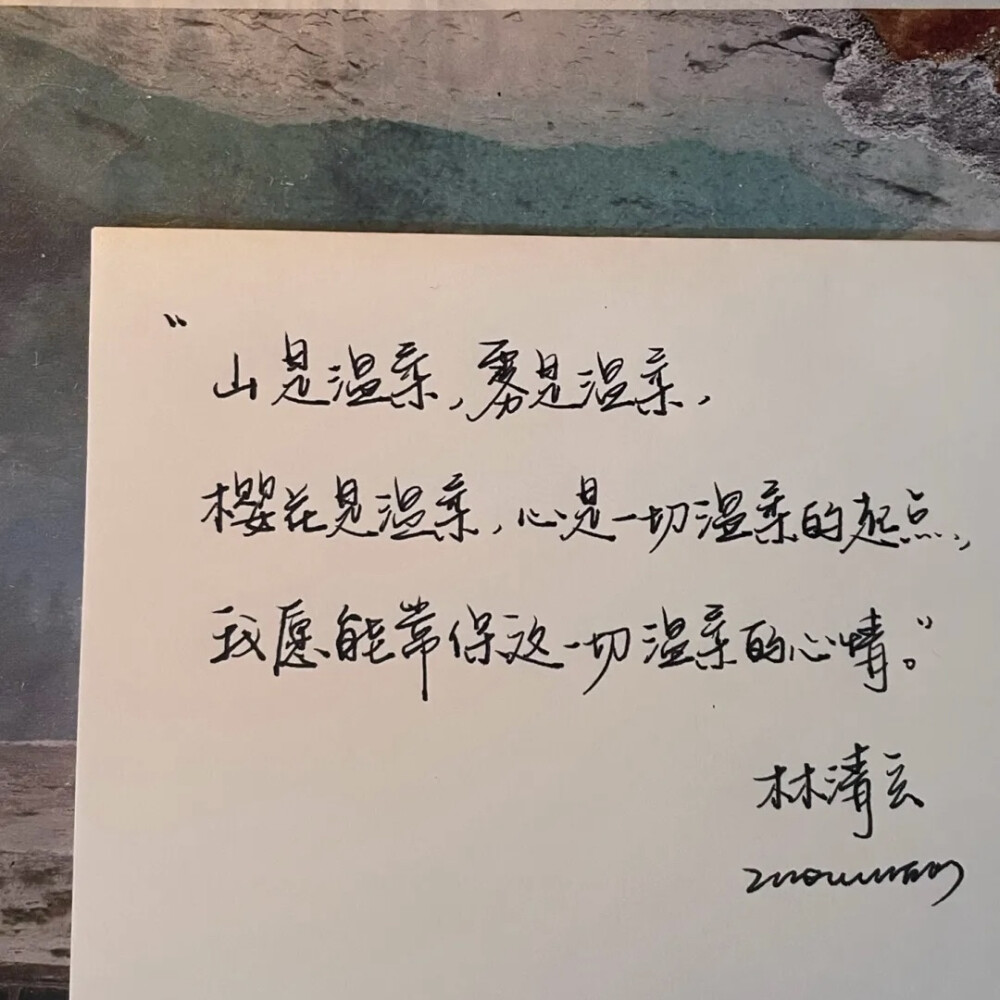 "山是温柔,雾是温柔,
樱花是温柔,心是一切温柔的起点,
我愿能常保这一切温柔的心情。"
林清玄